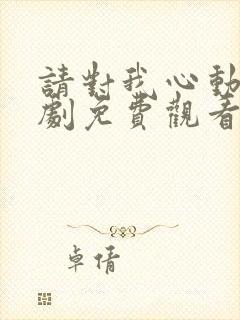 請對我心動
劇免費觀看
卓倩